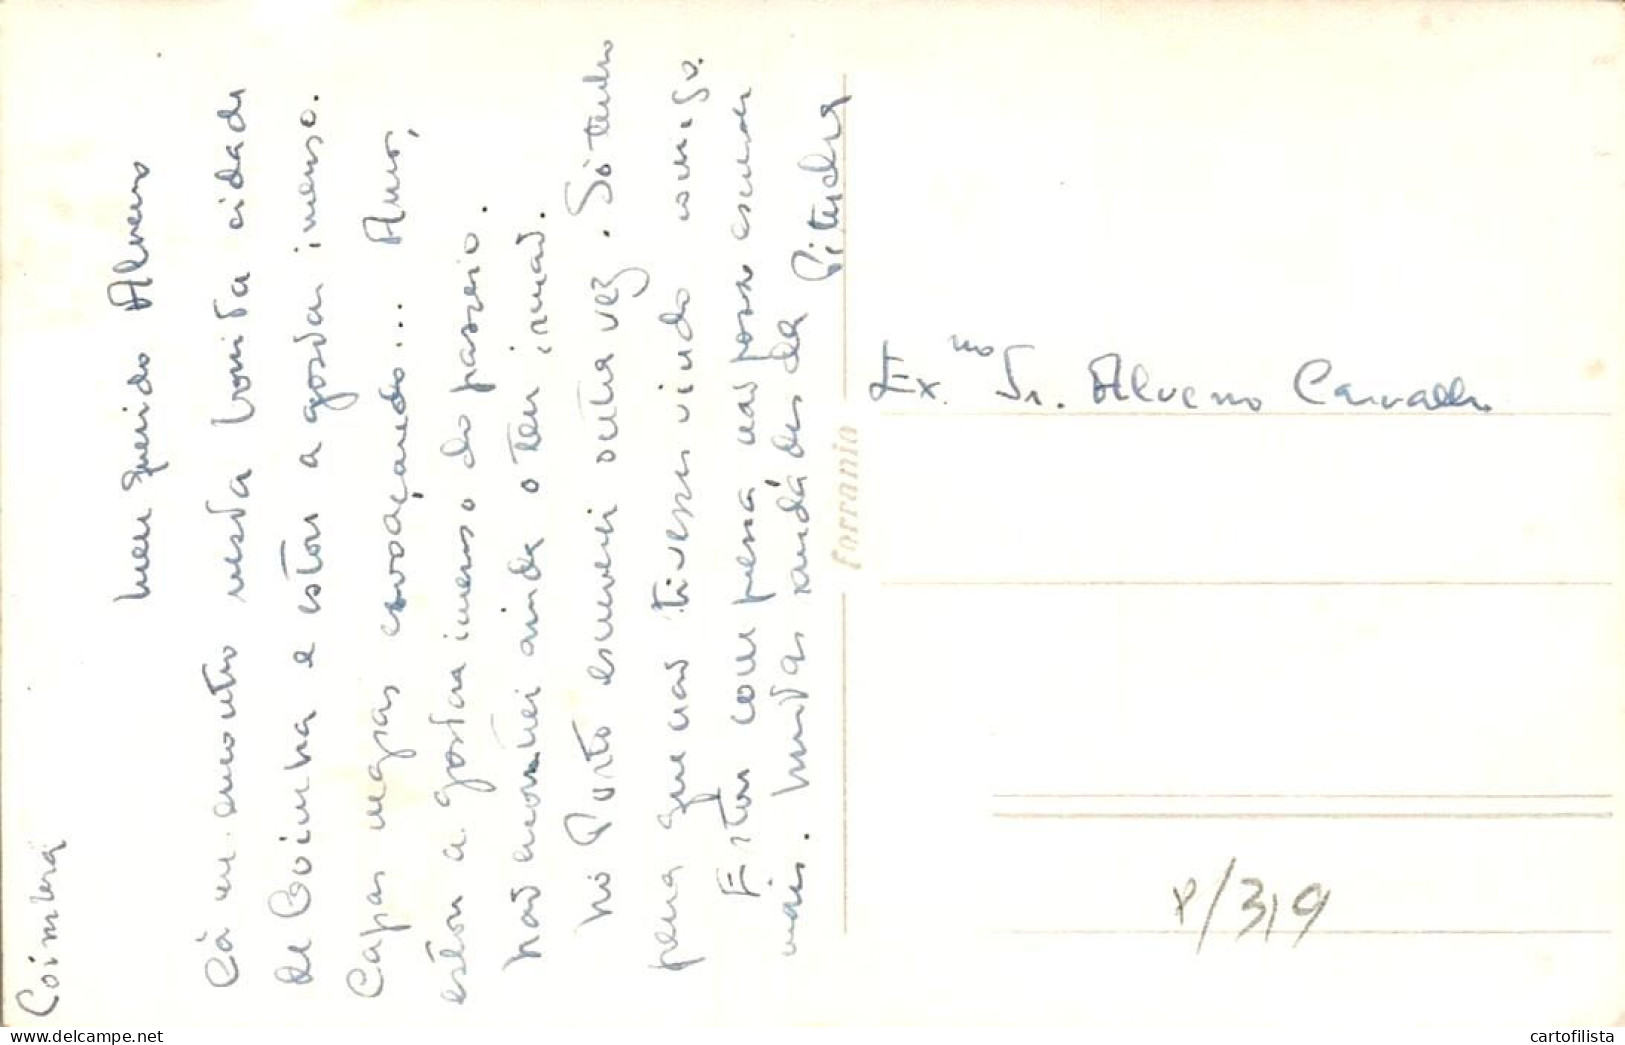 Coimbra
Meu querido Alveno
Cá me encontro nesta bonita cidade
de Coimbra e estou a gostar imenso.
Capas negras esvoaçando... Amor,
estou a gostar imenso do passeio.
Não encontrei ainda o teu irmão.
No Porto escreverei outra vez. Só tenho
pena que não tivesses vindo comigo.
Estou com pressa não posso escrever
mais. Muitas saudades da
Ferrania
Ex.mo Sr. Alveno Carvalho
P/319
cartofilista